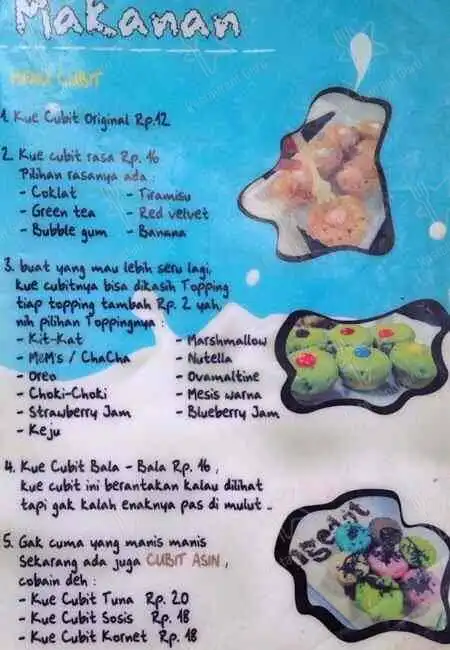 Makanan
MENU CUBIT
1. Kue Cubit Original Rp.12
2. Kue cubit rasa Rp. 16
Pilihan rasanya ada :
- Coklat - Tiramisu
- Green tea - Red velvet
- Bubble gum - Banana
3. buat yang mau lebih seru lagi,
kue cubitnya bisa dikasih Topping
tiap topping tambah Rp. 2 yah,
nih pilihan Toppingnya :
- Kit-Kat - Marshmallow
- M&M's / ChaCha - Nutella
- Oreo - Ovamaltine
- Choki-Choki - Mesis warna
- Strawberry Jam - Blueberry Jam
- Keju
4. Kue Cubit Bala - Bala Rp. 16 ,
kue cubit ini berantakan kalau dilihat
tapi gak kalah enaknya pas di mulut ..
5. Gak cuma yang manis manis
Sekarang ada juga CUBIT ASIN ,
cobain deh :
- Kue Cubit Tuna Rp. 20
- Kue Cubit Sosis Rp. 18
- Kue Cubit Kornet Rp. 18